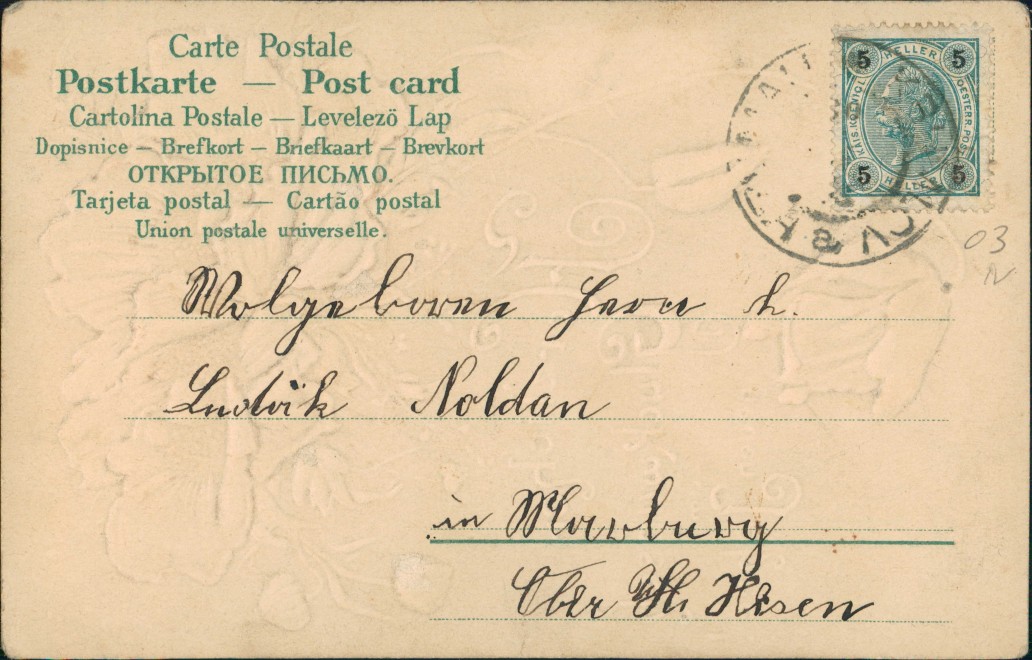 Carte Postale
Postkarte — Post card
Cartolina Postale — Levelezö Lap
Dopisnice — Brefkort — Briefkaart — Brevkort
ОТКРЫТОЕ ПИСЬМО.
Tarjeta postal — Cartão postal
Union postale universelle.
5 HELLER 5
KAIS. KOENIGL. OESTERR. POST
5 HELLER 5
03
N
Wolgeboren Herrn h.
Ludvik Noldan
in Marburg
Ober Hesen